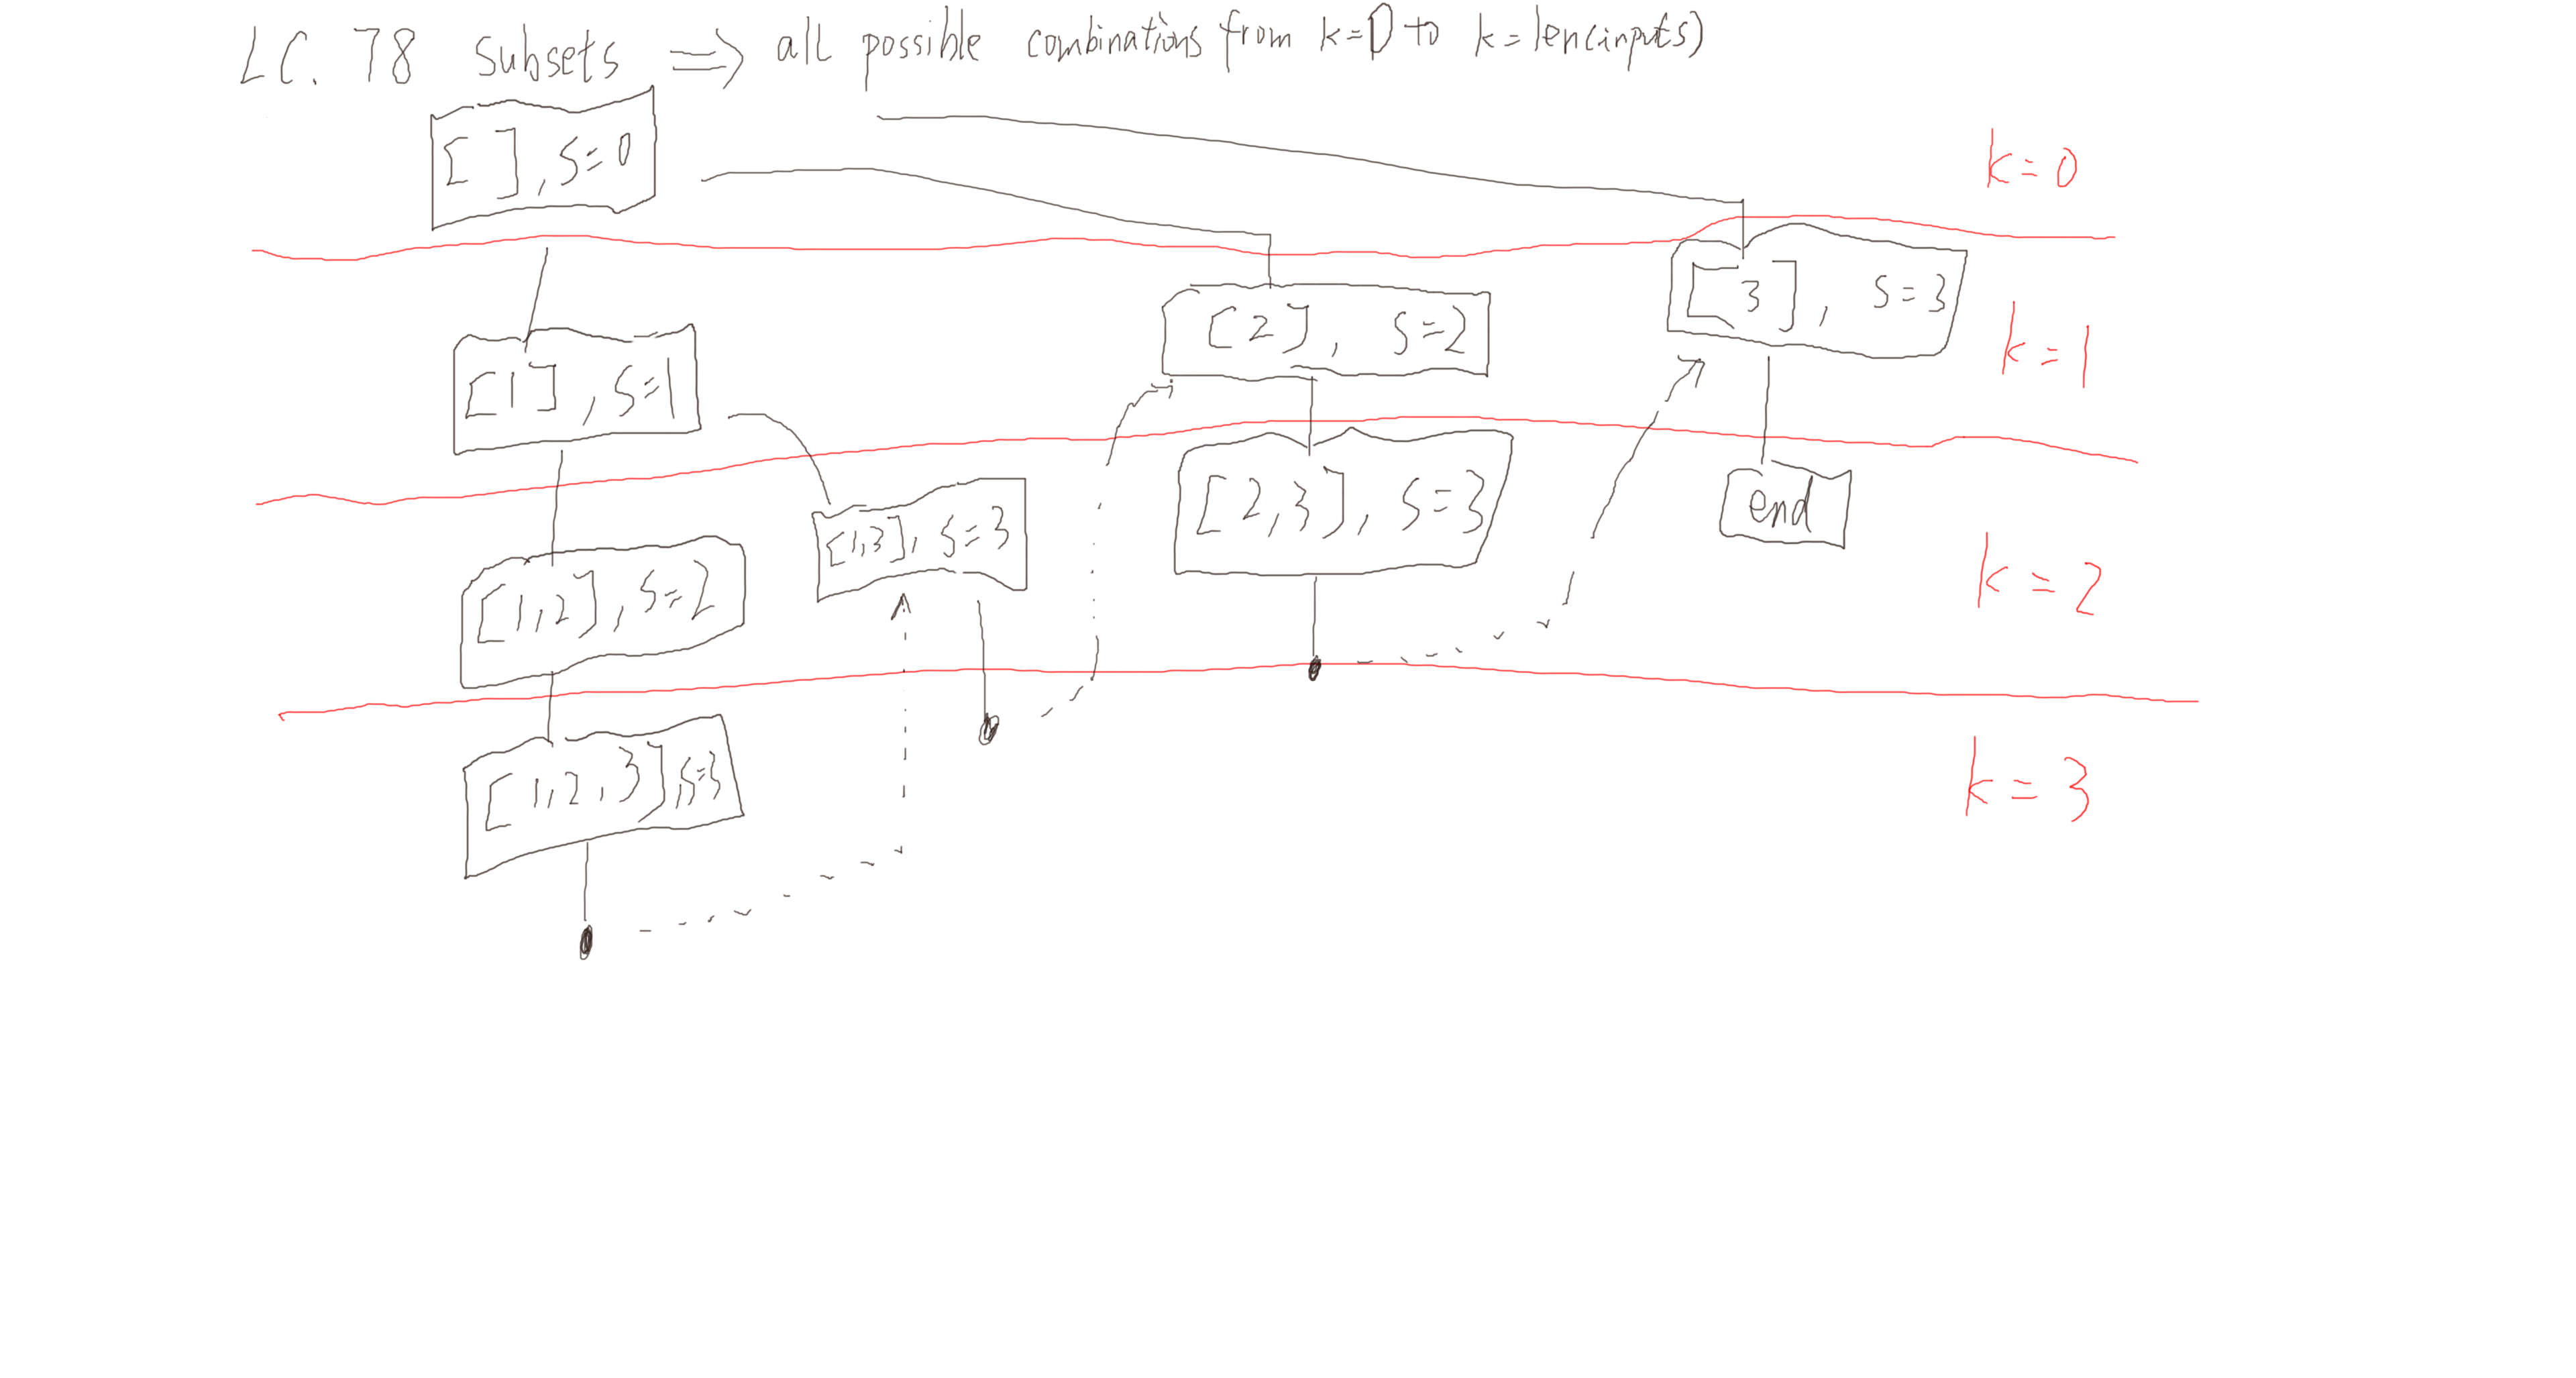 LC. 78 subsets ⇒ all possible combinations from k=0 to k=len(inputs)
[ ], s=0
k=0
[1], s=1
[2], s=2
[3], s=3
k=1
[1,2], s=2
[1,3], s=3
[2,3], s=3
end
k=2
[1,2,3], s=3
k=3